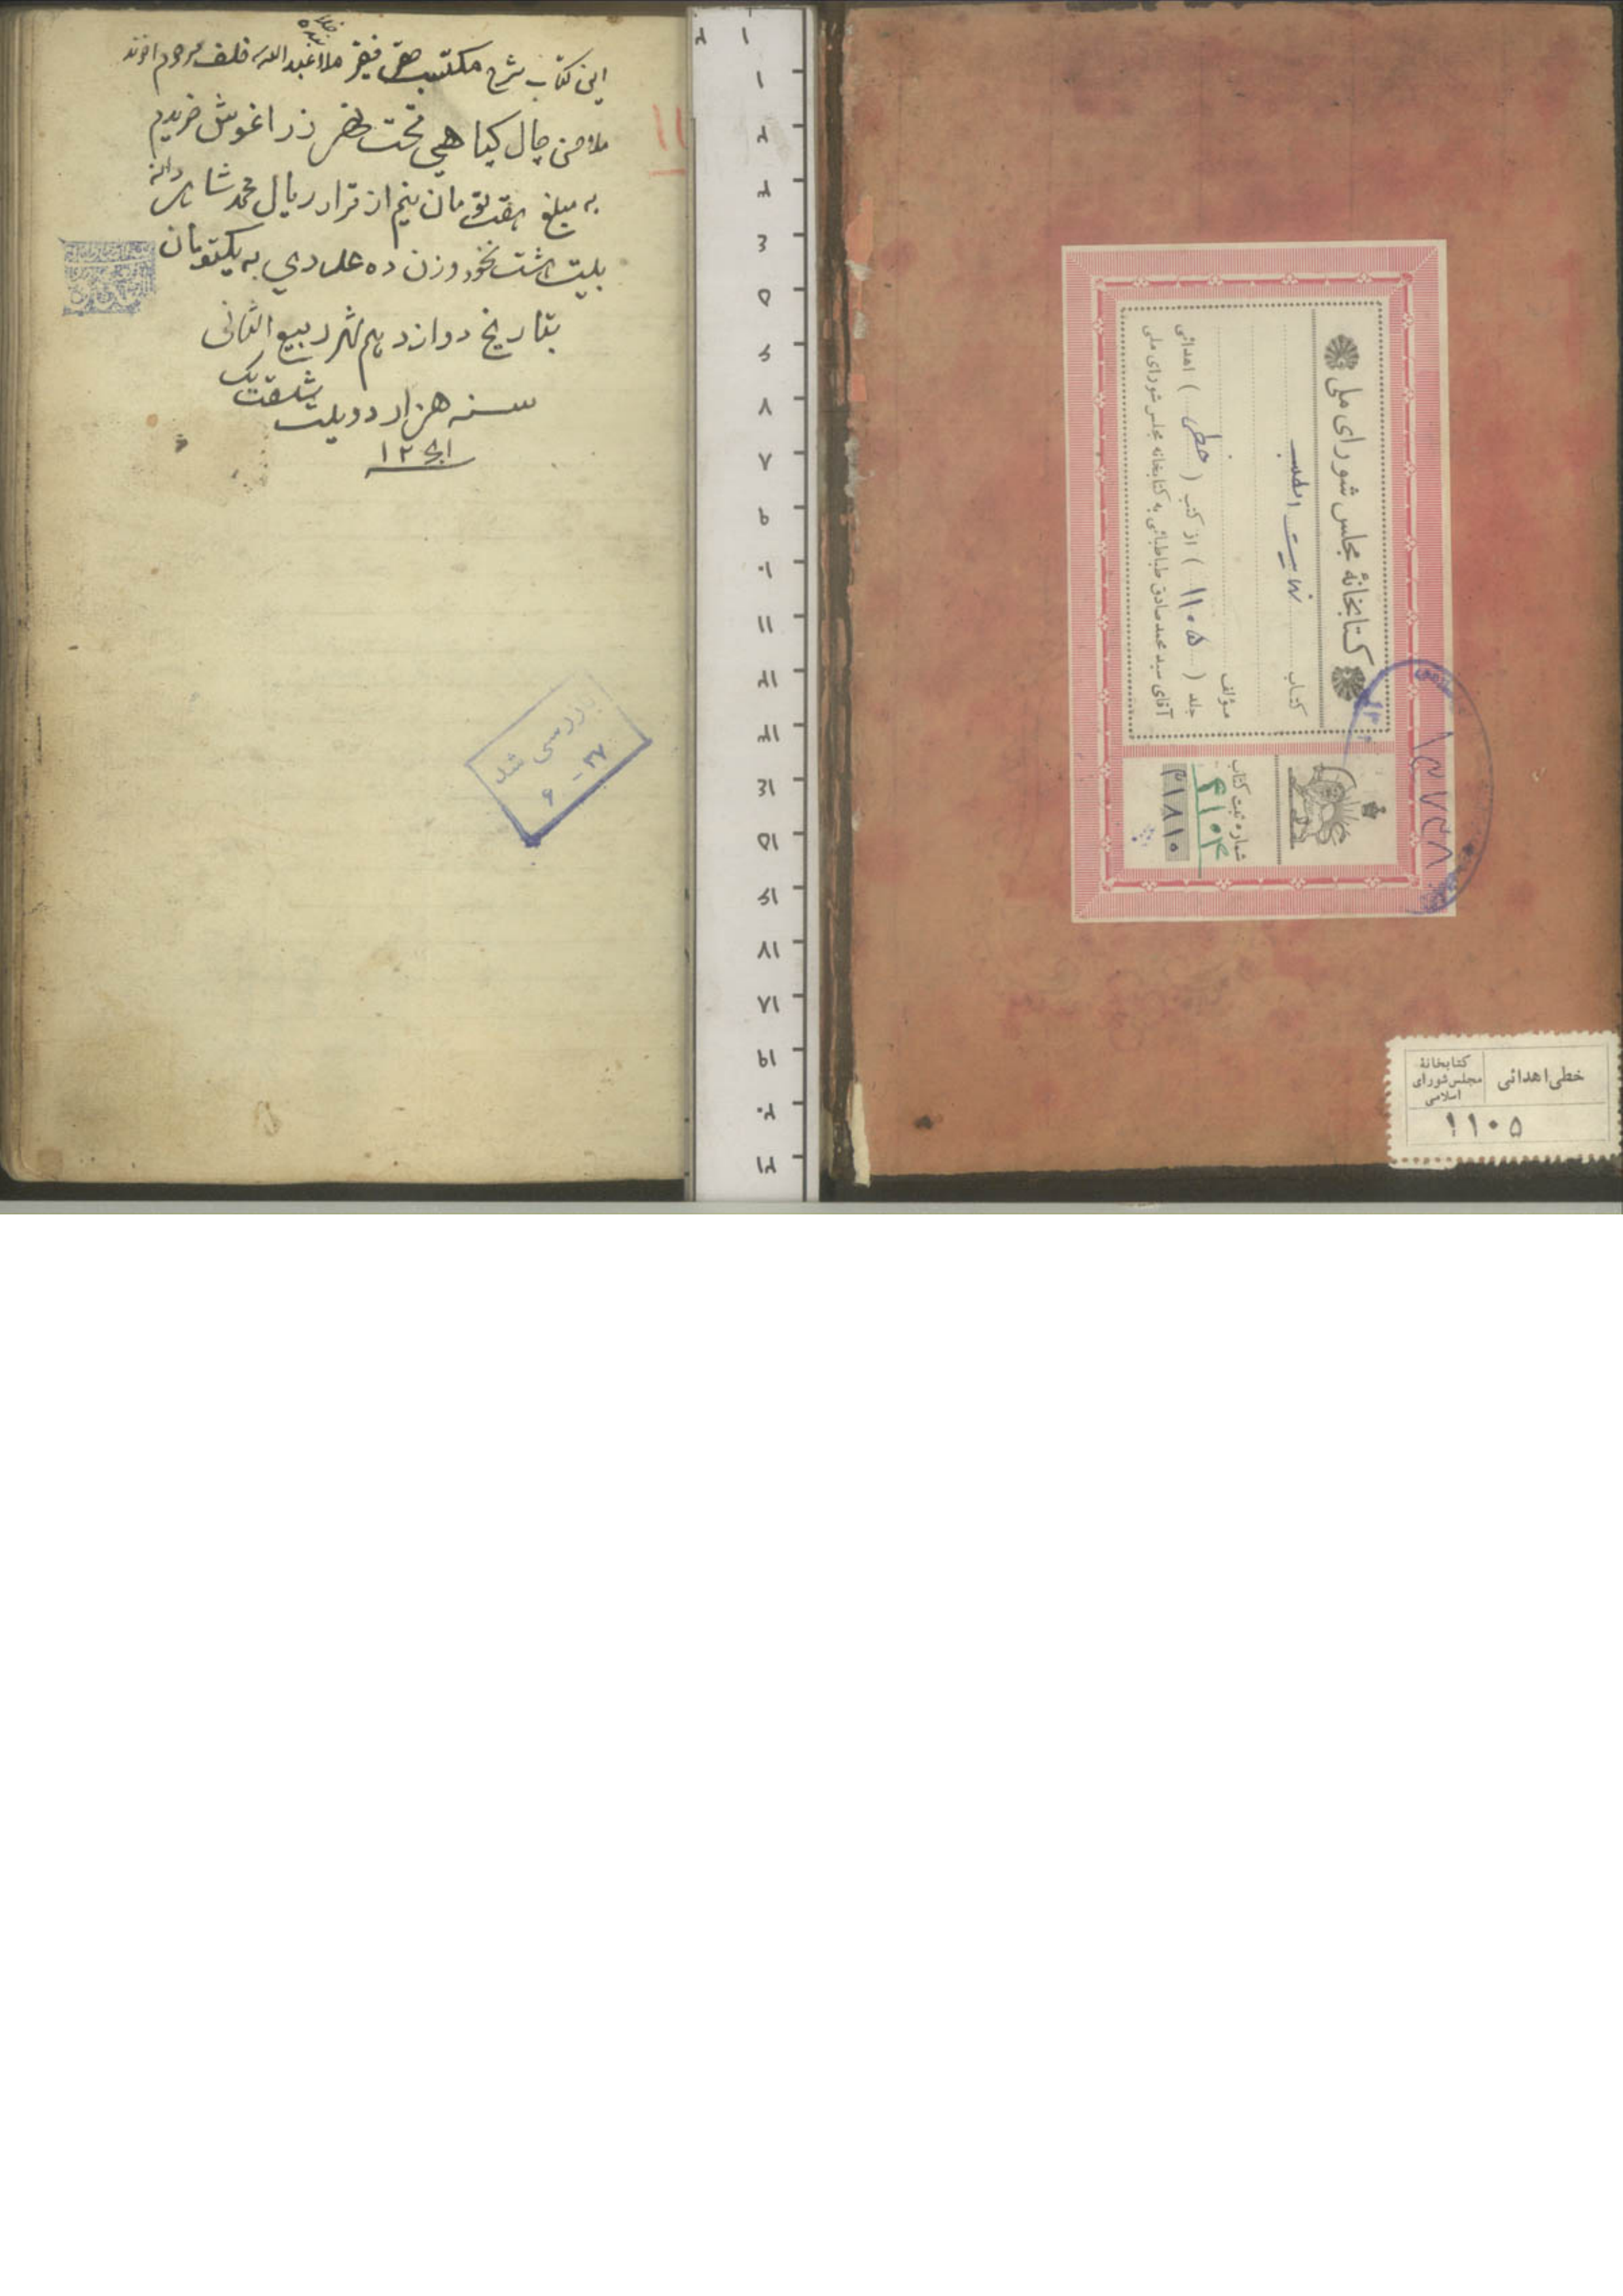 این کتاب شرح مکتب حقیر فقیر ملا عبدالله خلف مرحوم اخوند
ملا حسن چال کیاهی تحت خضر زراغوش خریدم
به مبلغ هفت تومان نیم از قرار ریال محمد شاهی دانه
بیست هشت نخود وزن ده عددی به یکتومان
بتاریخ دوازدهم شهر ربیع الثانی
سنه هزار دویست شصت یک
۱۲۶۱
بررسی شد
۳۷ - ۶
کتابخانهٔ مجلس شورای ملی
کتاب
مؤلف
جلد ( ۱۱۰۵ ) از کتب ( خطی ) اهدائی
آقای سید محمد صادق طباطبائی به کتابخانه مجلس شورای ملی
شماره ثبت کتاب
۴۱۰۴
۳۱۸۱۰
۱۳۷۳۸
خطی اهدائی
کتابخانهٔ
مجلس شورای
اسلامی
۱۱۰۵